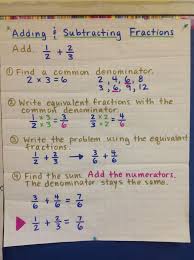 Adding & Subtracting Fractions
Add. 1/2 + 2/3
① Find a common denominator.
2 x 3 = 6 2, 4, 6, 8
3, 6, 9, 12
② Write equivalent fractions with the
common denominator.
1 x 3 / 2 x 3 = 3/6 2 x 2 / 3 x 2 = 4/6
③ Write the problem using the equivalent
fractions.
1/2 + 2/3 → 3/6 + 4/6
④ Find the sum. Add the numerators.
The denominator stays the same.
3/6 + 4/6 = 7/6
1/2 + 2/3 = 7/6